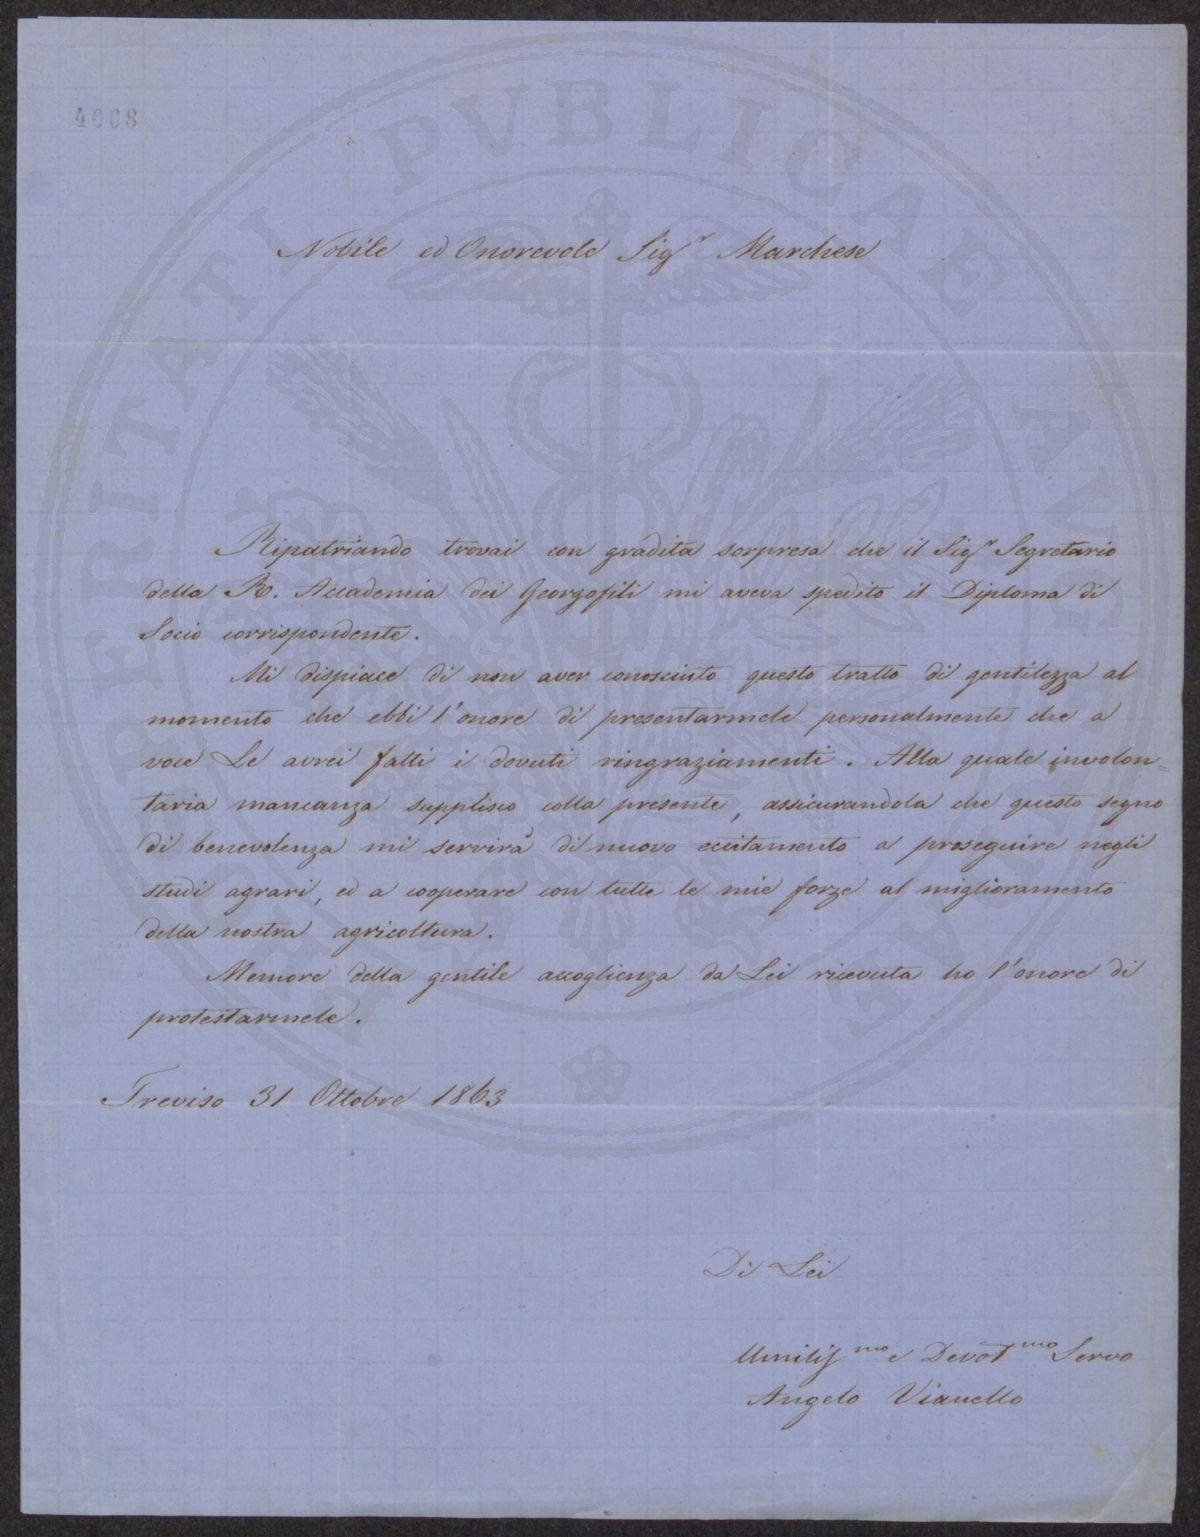 4068
PROSPERITATI PUBLICAE AUGENDAE
Nobile ed Onorevole Sig.r Marchese
Ripatriando trovai con gradita sorpresa che il Sig.r Segretario
della R. Accademia dei Georgofili mi aveva spedito il Diploma di
Socio corrispondente.
Mi dispiace di non aver conosciuto questo tratto di gentilezza al
momento che ebbi l'onore di presentarmele personalmente che a
voce Le avrei fatti i dovuti ringraziamenti. Alla quale involon=
taria mancanza supplisco colla presente, assicurandola che questo segno
di benevolenza mi servirà di nuovo eccitamento a proseguire negli
studi agrari, ed a cooperare con tutte le mie forze al miglioramento
della nostra agricoltura.
Memore della gentile accoglienza da Lei ricevuta ho l'onore di
protestarmele.
Treviso 31 Ottobre 1863
Di Lei
Umiliss.mo e Devot.mo Servo
Angelo Vianello